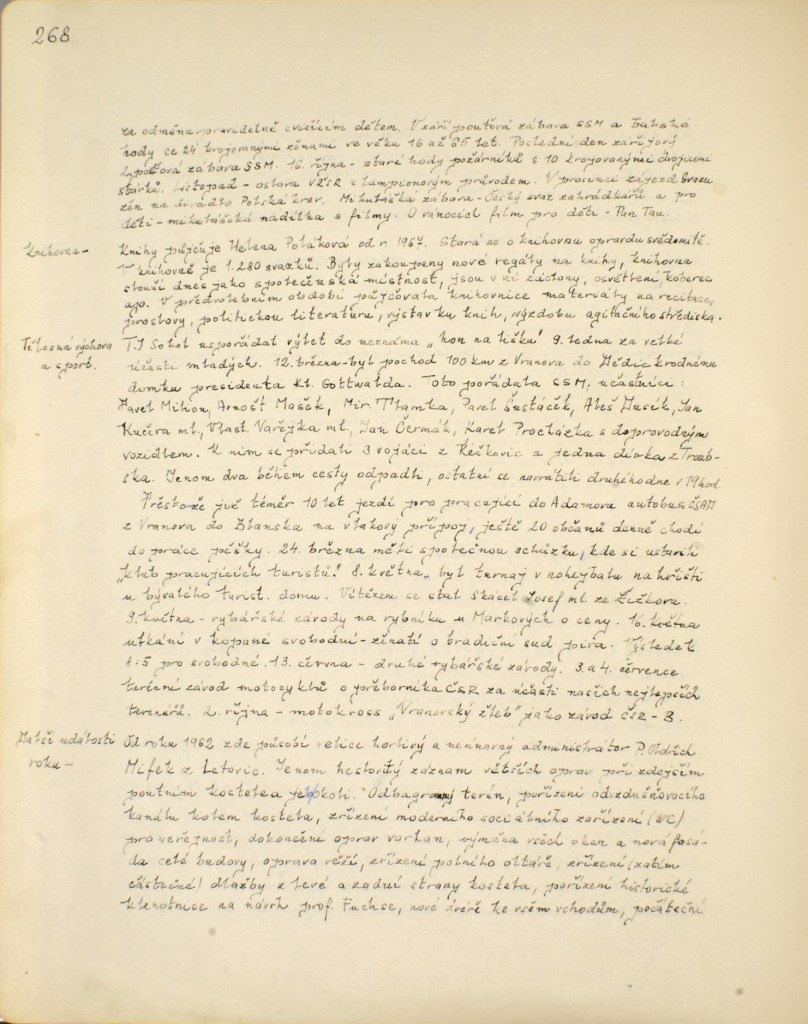 268
za odměnu pravidelně cvičícím dětem. V září pouťová zábava SSM a Babské
hody se 24 krojovanými ženami ve věku 16 až 65 let. Poslední den září
zábava SSM. 16. října - staré hody požárníků s 10 krojovanými dvojicemi
stárků. Listopad - oslava VŘSR s lampionovým průvodem. V prosinci zájezd Svazu
žen na divadlo Polská krev. Mikulášská zábava - Český svaz zahrádkářů a pro
děti - mikulášská nadílka s filmy. O vánocích film pro děti - Pan Tau.
Knihovna -
Knihy půjčuje Helena Poláková od r. 1967. Stará se o knihovnu opravdu svědomitě.
V knihovně je 1.280 svazků. Byly zakoupeny nové regály na knihy, knihovna
slouží dnes jako společenská místnost, jsou v ní záclony, osvětlení, koberec
ap. V předvolebním období půjčovala knihovnice materiály na recitace,
proslovy, politickou literaturu, výstavku knih, výzdobu agitačního střediska.
Tělesná výchova
a sport.
T.J Sokol uspořádal výlet do neznáma „hon na lišku" 9. ledna za velké
účasti mladých. 12. března - byl pochod 100 km z Vranova do Dědic k rodnému
domku presidenta Kl. Gottwalda. Toto pořádala SSM, účastníci:
Pavel Milion, Arnošt Mašek, Mir. Tlamka, Pavel Šustáček, Aleš Dusík, Jan
Kučera ml., Vlast. Vařejka ml., Jan Čermák, Karel Procházka s doprovodným
vozidlem. K nim se přidali 3 vojáci z Řečkovic a jedna dívka z Troub-
ska. Jenom dva během cesty odpadli, ostatní se navrátili druhého dne v 19 hod.
Přestože již téměr 10 let jezdí pro pracující do Adamova autobus ČSAD
z Vranova do Blanska na vlakový přípoj, ještě 20 občanů denně chodí
do práce pěšky. 24. března měli společnou schůzku, kde si ustavili
„klub pracujících turistů." 8. května - byl turnaj v nohejbalu na hřišti
u bývalého turist. domu. Vítězem se stal Skácel Josef ml. ze Lížkova.
9. května - rybářské závody na rybníku u Markových o ceny. 16. května
utkání v kopané svobodní - ženatí o tradiční sud piva. Výsledek
8:5 pro svobodné. 13. června - druhé rybářské závody. 3. a 4. července
terénní závod motocyklů o přeborníka ČSR za účasti našich nejlepších
terenářů. 2. října - motokross „Vranovský žleb" jako závod ČSR - B.
Další události
roku -
Od roku 1962 zde působí velice horlivý a neúnavný administrátor P. Oldřich
Mifek z Letovic. Jenom heslovitý záznam větších oprav při zdejším
poutním kostele a jeho okolí. Odbagrovaný terén, pořízení odvzdušňovacího
kanálu kolem kostela, zřízení moderního sociálního zařízení (WC)
pro veřejnost, dokončení oprav varhan, výměna všech oken a nová fasá-
da celé budovy, oprava věží, zřízení polního oltáře, zřízení (zatím
částečné) dlažby z levé a zadní strany kostela, pořízení historické
klenotnice na návrh prof. Fuchse, nové dvéře ke všem vchodům, počáteční